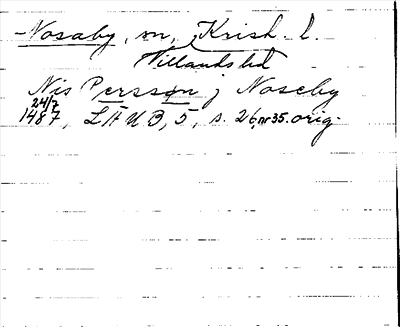 Nosaby, sn, Krist. l.
Villands hd
Nis Persson j Noseby
24/7
1487, LÄUB, 5, s. 26, nr 35. orig.